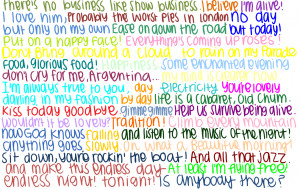 there's no business like show business! I believe! I'm alive!
I love him, Probably the worst pies in London no day
but only on my own Ease on down the road but today!
Put on a happy face! Everything's coming up roses!
Done Time around a Cloud to town on my
Food, glorious food! happiness some enchanted evening
don't cry for me, Argentina...
I'm always true to you, day electricity you're lovely
darling in my fashion by day life is a cabaret, old chum.
Kiss today goodbye, gimme gimme Help us survive being alive
Wouldn't it be loverly? Tradition! Climb every mountain
now God knows falling and listen to the music of the night!
anything goes slowly Oh, what a beautiful morning
sit down, you're rockin' the boat! And all that jazz
and make this endless day At least I'm flying free!
endless night! tonight! Is anybody there?